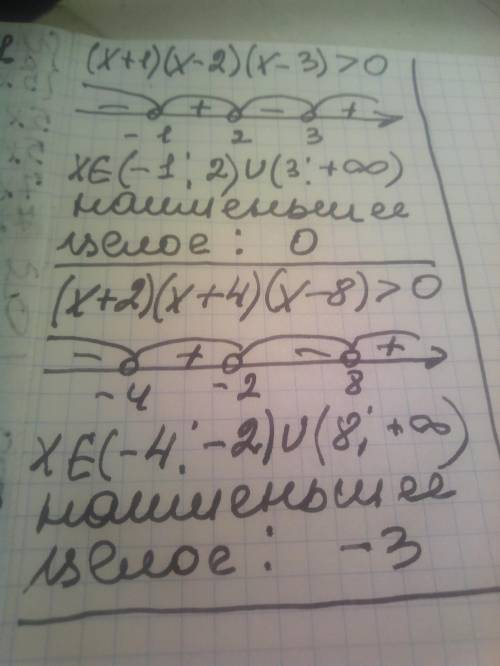 (x+1)(x-2)(x-3)>0
- + - +
-1 2 3
XE(-1; 2)U(3; +∞)
наименьшее
целое: 0
(x+2)(x+4)(x-8)>0
- + - +
-4 -2 8
XE(-4; -2)U(8; +∞)
наименьшее
целое: -3